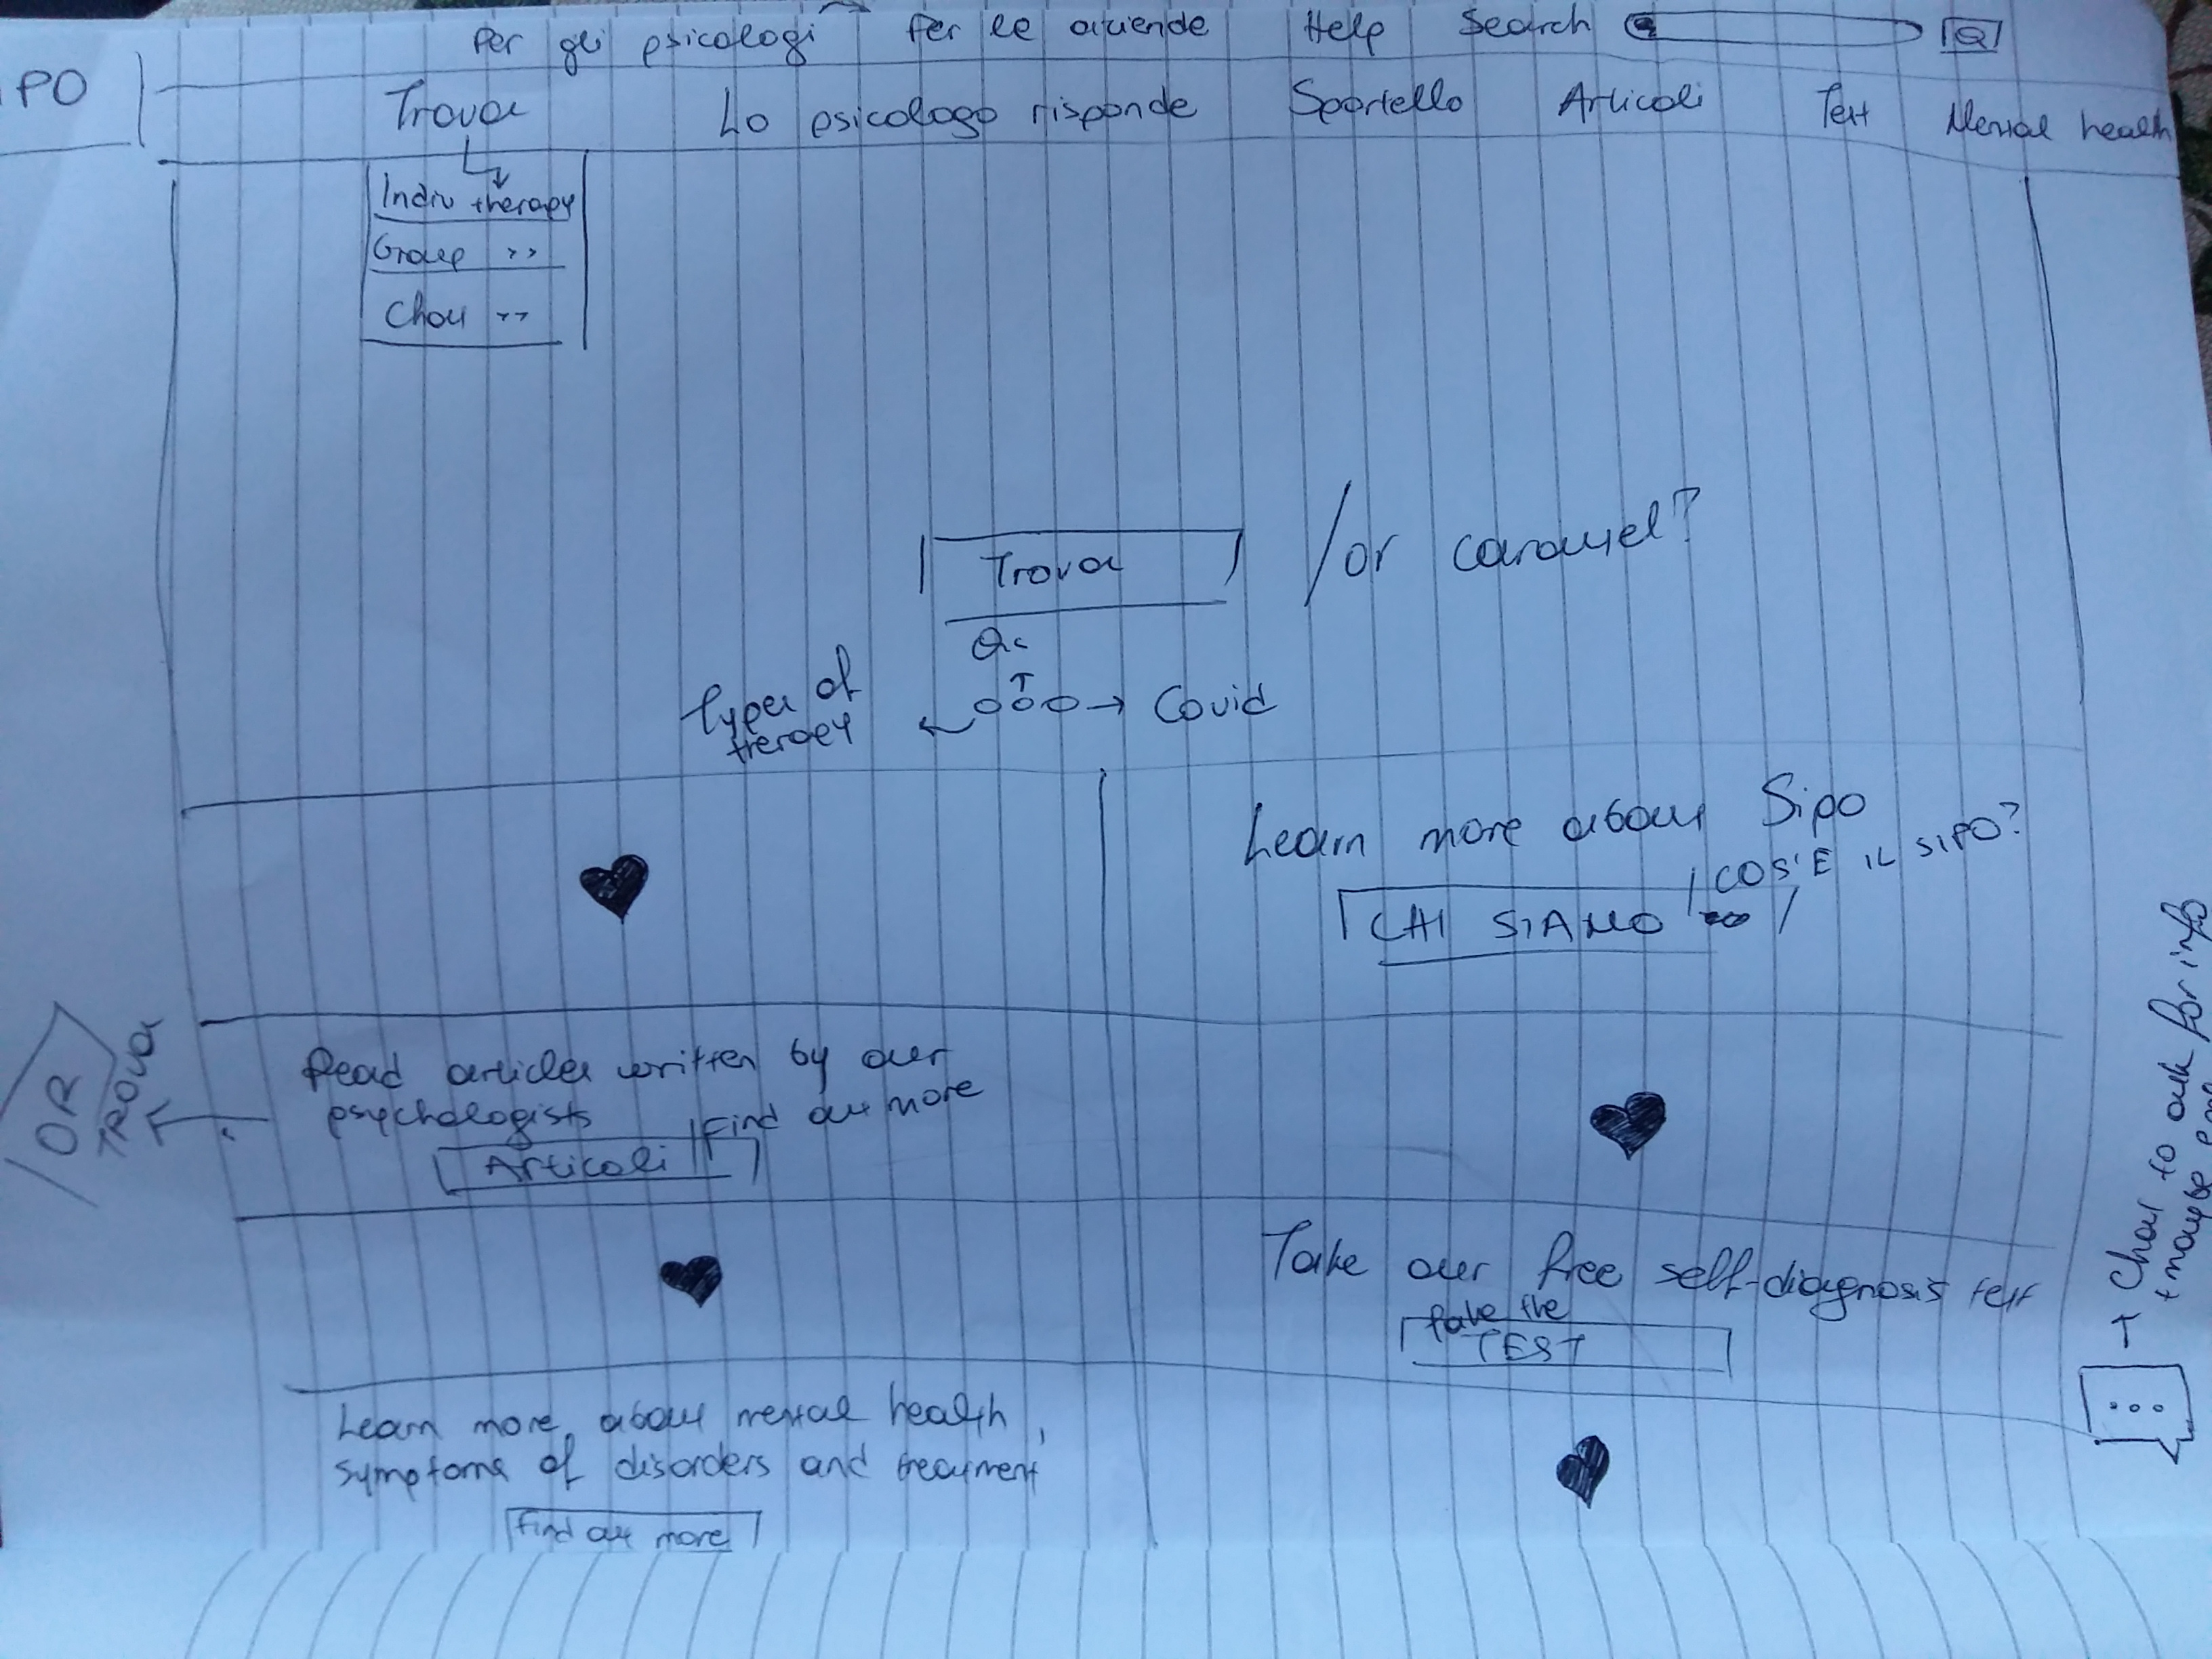 Per gli psicologi Per le aziende Help Search
PO
Trova Lo psicologo risponde Sportello Articoli Test Mental health
Indiv therapy
Group ››
Chat ››
Trova /or carousel?
Types of
therapy
Covid
Learn more about Sipo
COS'E IL SIPO?
CHI SIAMO
Read articles written by our
psychologists Find out more
Articoli
OR
TROVA
Take our free self-diagnosis test
Take the
TEST
Learn more about mental health,
symptoms of disorders and treatment
Find out more
→ Chat to ask for info
+ maybe
...